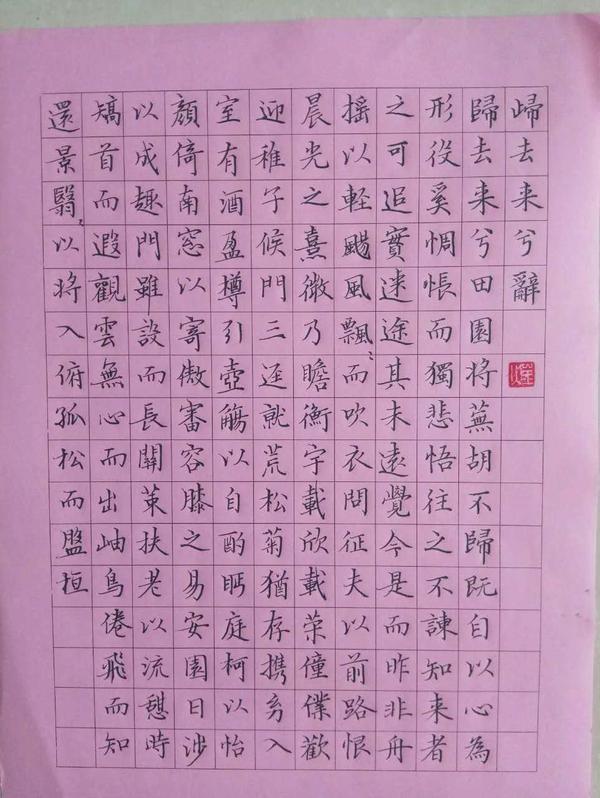 歸去来兮辭
歸去来兮田園将蕪胡不歸既自以心為
形役奚惆悵而獨悲悟往之不諫知来者
之可追實迷途其未遠覺今是而昨非舟
摇以軽颺風飄〻而吹衣問征夫以前路恨
晨光之熹微乃瞻衡宇載欣載荣僮僕歡
迎稚子候門三迳就荒松菊猶存携幼入
室有酒盈樽引壺觴以自酌眄庭柯以怡
顔倚南窓以寄傲審容膝之易安園日涉
以成趣門雖設而長關策扶老以流憩時
矯首而遐觀雲無心而出岫鳥倦飛而知
還景翳〻以将入俯孤松而盤桓